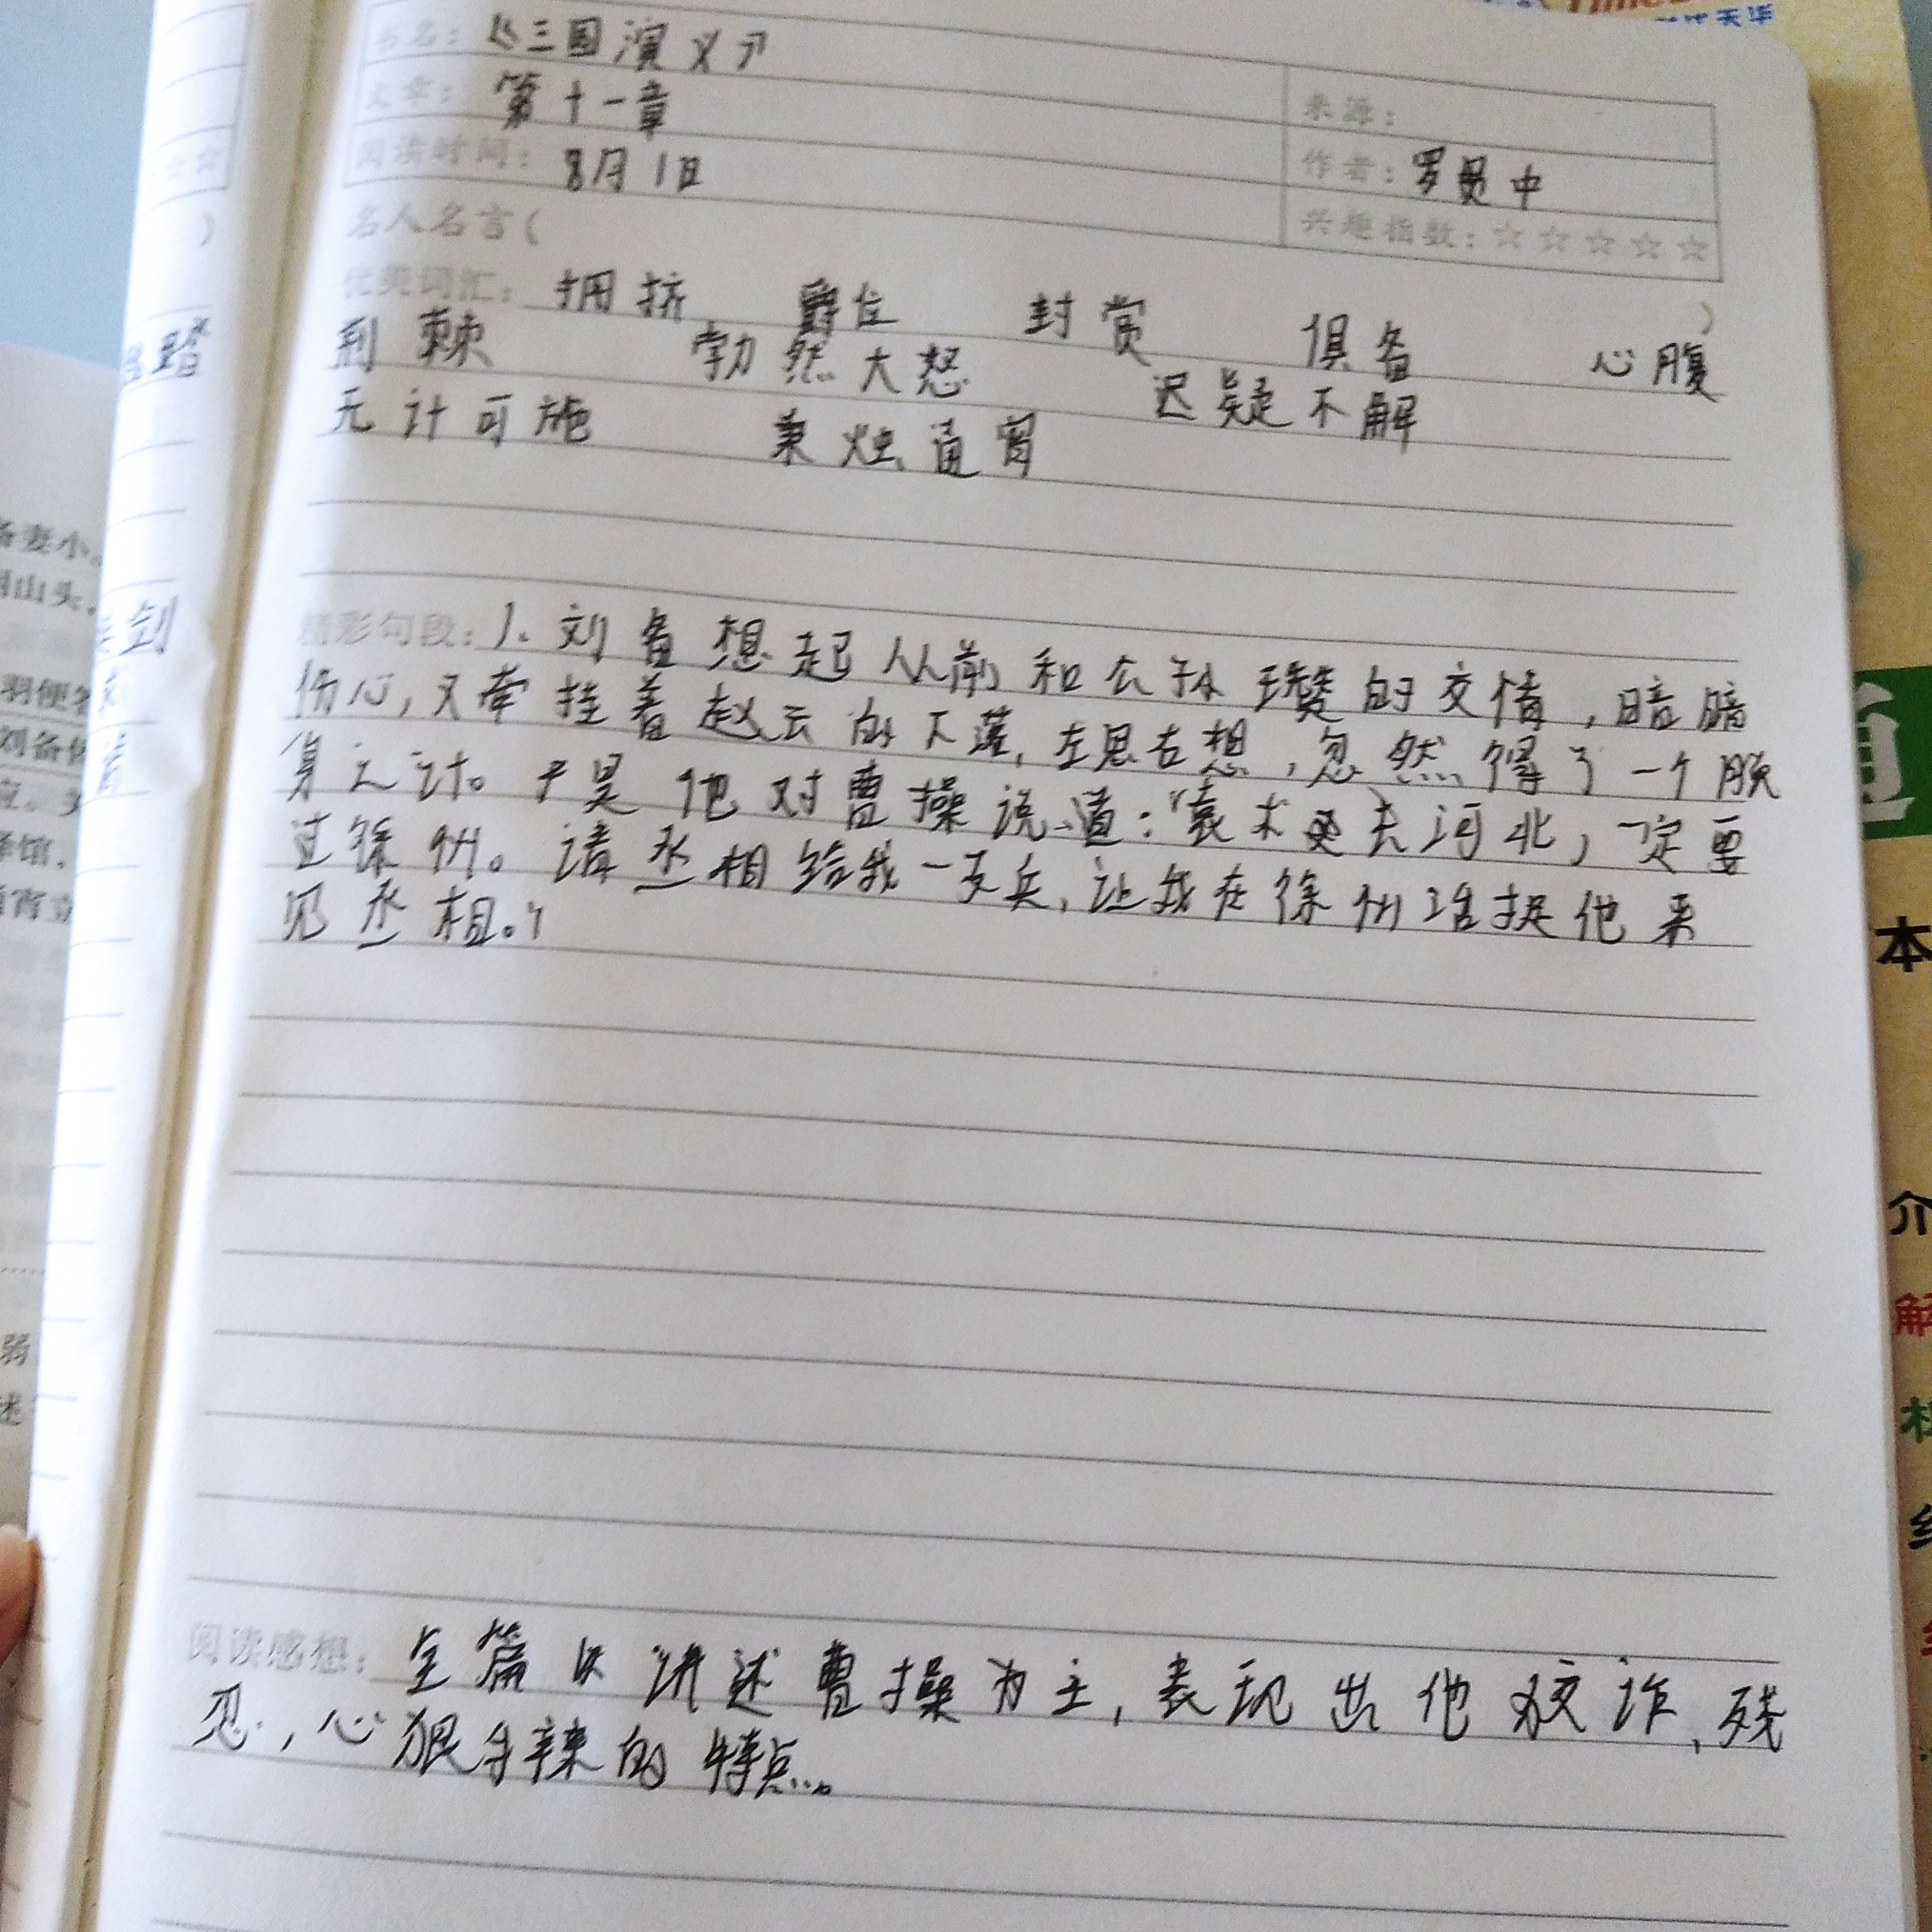 书名：《三国演义》
文章：第十一章
来源：
阅读时间：8月1日
作者：罗贯中
兴趣指数：☆☆☆☆☆
名人名言( )
优美词汇：拥挤 爵位 封赏 俱备 心腹
荆棘 勃然大怒 迟疑不解
无计可施 秉烛通宵
精彩句段：1、刘备想起从前和公孙瓒的交情，暗暗
伤心，又牵挂着赵云的下落，左思右想，忽然得了一个脱
身之计。于是他对曹操说道：“袁术要去河北，一定要
过徐州。请丞相给我一支兵，让我在徐州活捉他来
见丞相。”
阅读感想：全篇以讲述曹操为主，表现出他狡诈、残
忍，心狠手辣的特点。
踏
剑
备妻小
山头，
羽便
刘备
应。
馆，
宵立
弱
述
本
介
解